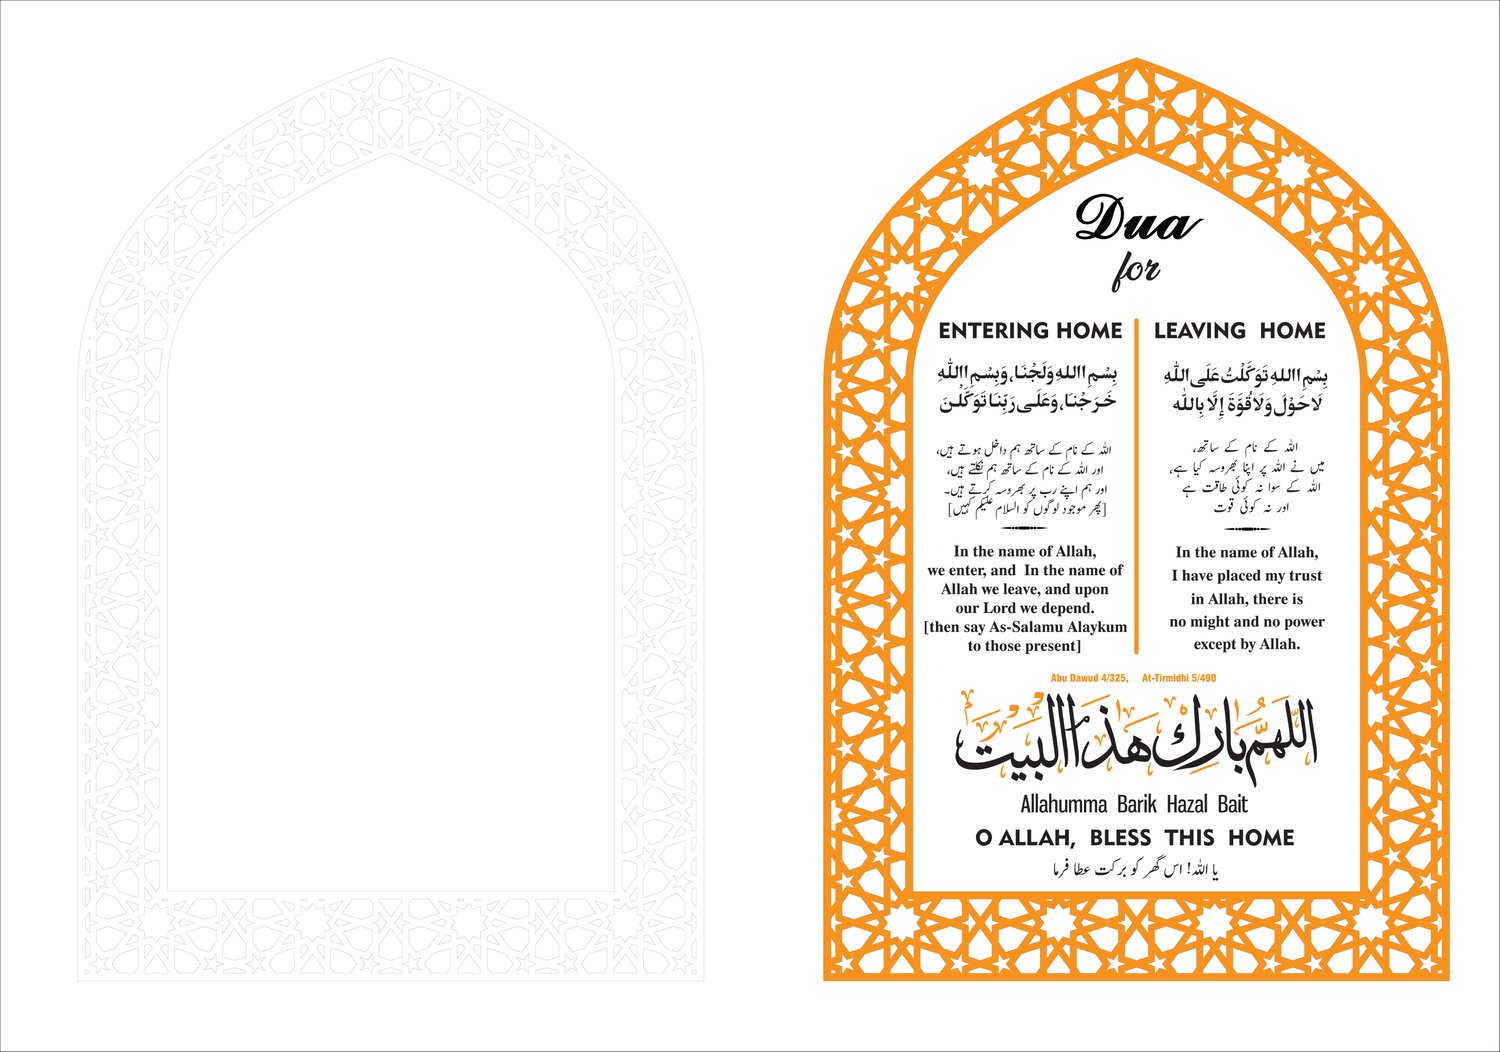 Dua
for
ENTERING HOME
بِسْمِ اللهِ وَلَجْنَا، وَبِسْمِ اللّٰهِ
خَرَجْنَا، وَعَلَى رَبِّنَا تَوَكَّلْنَ
اللہ کے نام کے ساتھ ہم داخل ہوتے ہیں،
اور اللہ کے نام کے ساتھ ہم نکلتے ہیں،
اور ہم اپنے رب پر بھروسہ کرتے ہیں۔
[پھر موجود لوگوں کو السلام علیکم کہیں]
In the name of Allah,
we enter, and In the name of
Allah we leave, and upon
our Lord we depend.
[then say As-Salamu Alaykum
to those present]
LEAVING HOME
بِسْمِ اللهِ تَوَكَّلْتُ عَلَى اللّٰهِ
لَا حَوْلَ وَلَا قُوَّةَ إِلَّا بِاللّٰه
اللہ کے نام کے ساتھ،
میں نے اللہ پر اپنا بھروسہ کیا ہے،
اللہ کے سوا نہ کوئی طاقت ہے
اور نہ کوئی قوت
In the name of Allah,
I have placed my trust
in Allah, there is
no might and no power
except by Allah.
Abu Dawud 4/325, At-Tirmidhi 5/490
اللّٰهُمَّ بَارِكْ هَذَا البَيْت
Allahumma Barik Hazal Bait
O ALLAH, BLESS THIS HOME
یا اللہ! اس گھر کو برکت عطا فرما